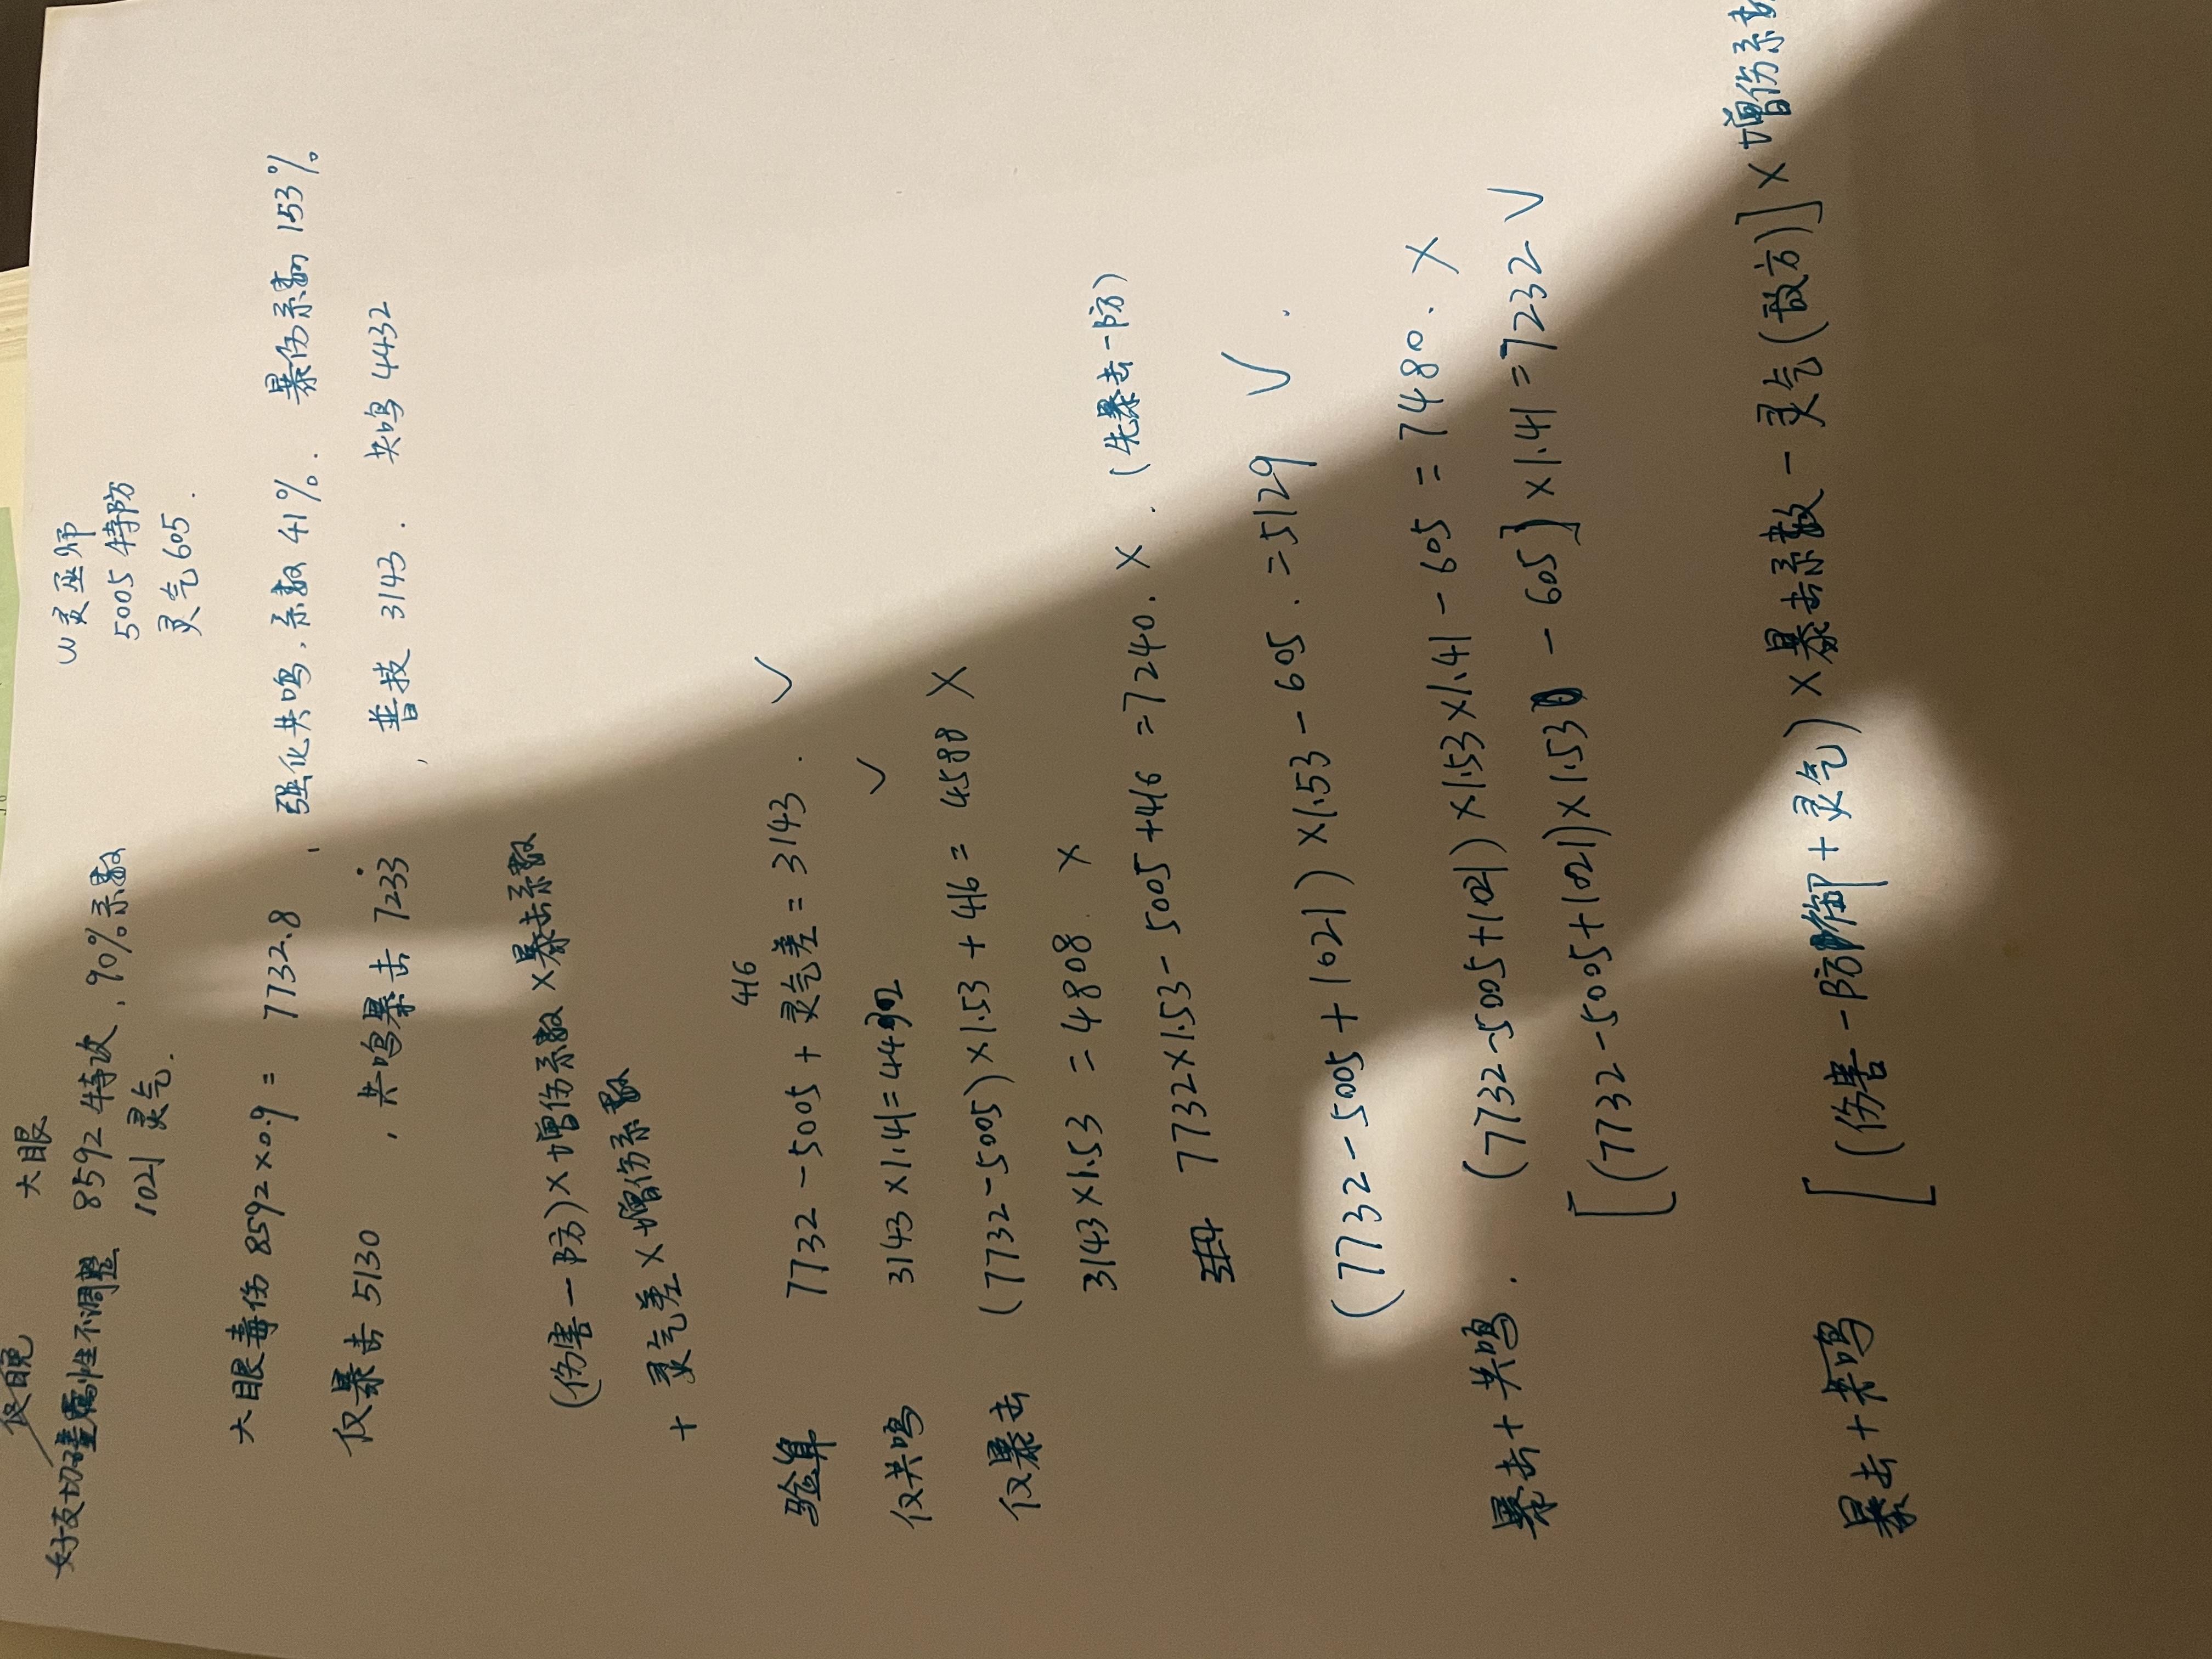 大眼
W灵巫师
好友切磋属性不调整 8592特攻, 90%系数
5005特防
1021 灵气.
灵气605.
大眼毒伤 8592×0.9 = 7732.8, 强化共鸣.系数41%. 暴伤系数153%
仅暴击 5130 , 共鸣暴击 7233 , 普技 3143 . 共鸣 4432
(伤害-防)×增伤系数×暴击系数
+ 灵气差×增伤系数
416
验算 7732-5005+灵气差=3143. ✓
仅共鸣 3143×1.41=4432 ✓
仅暴击 (7732-5005)×1.53+416=4588 ×
3143×1.53=4808 ×
7732×1.53-5005+416=7240. × . (先暴击-防)
(7732-5005+1021)×1.53-605.=5129 ✓ .
暴击+共鸣. (7732-5005+1021)×1.53×1.41-605=7480. ×
[(7732-5005+1021)×1.53-605]×1.41=7232 ✓
暴击+共鸣 [(伤害-防御+灵气)×暴击系数-灵气(敌方)]×增伤系数